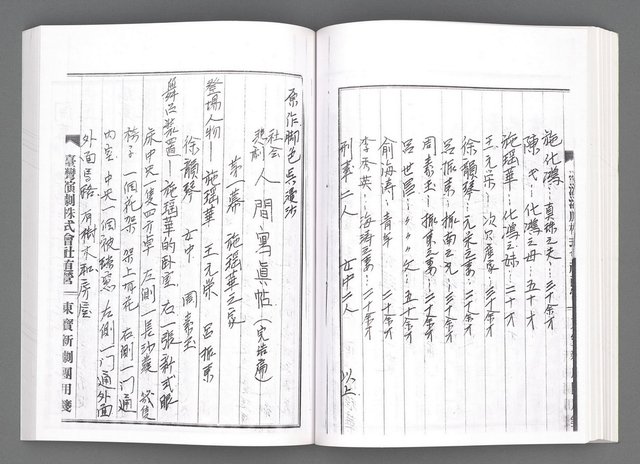 施化鴻 真珠之夫 三十余才
陳氏 化鴻之母 五十才
施瑶華 化鴻之妹 二十才
王元栄 次兄 三十余才
徐韻琴 元栄之妻 二十余才
呂振東 振南之兄 三十余才
周素玉 振東之妻 二十余才
呂世臣 〃〃〃父 五十余才
俞海涛 青年 二十余才
李秀英 海涛之妻 二十余才
刑事二人 女中二人 以上
原作脚色 吳漫沙
社会悲劇 人間寫眞帖(完結扁)
第一幕 施瑶華之家
登場人物 施瑶華 王元栄 呂振東
徐韻琴 女中 周素玉
舞台装置 施瑶華的臥室 右一張新式眠
床中央一隻四方卓 左側一長沙發 幾隻
椅子 一個花架 架上有花 右側一門通
內室 中央一個玻璃窓 左側一門通外面
外面馬路 有樹木和房屋
臺灣演劇株式會社直營 東寶新劇團用箋